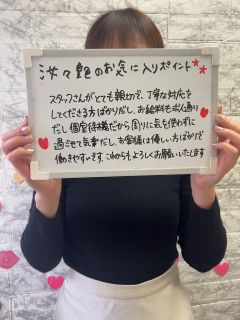 汝々艶のお気に入りポイント
スタッフさんがとても親切で、丁寧な対応を
してくださる方ばかりだし、お給料も求人通り
だし個室待機だから周りに気を使わずに
過ごせて気楽だし、お客様は優しい方ばかりで
働きやすいです これからもよろしくお願いいたします